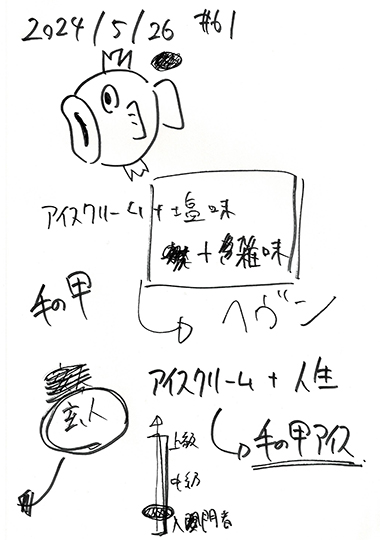 2024/5/26 #61
アイスクリーム + 塩味
+ 雑味
ヘヴン
手の甲
アイスクリーム + 人生
手の甲アイス
玄人
上級
中級
入門者